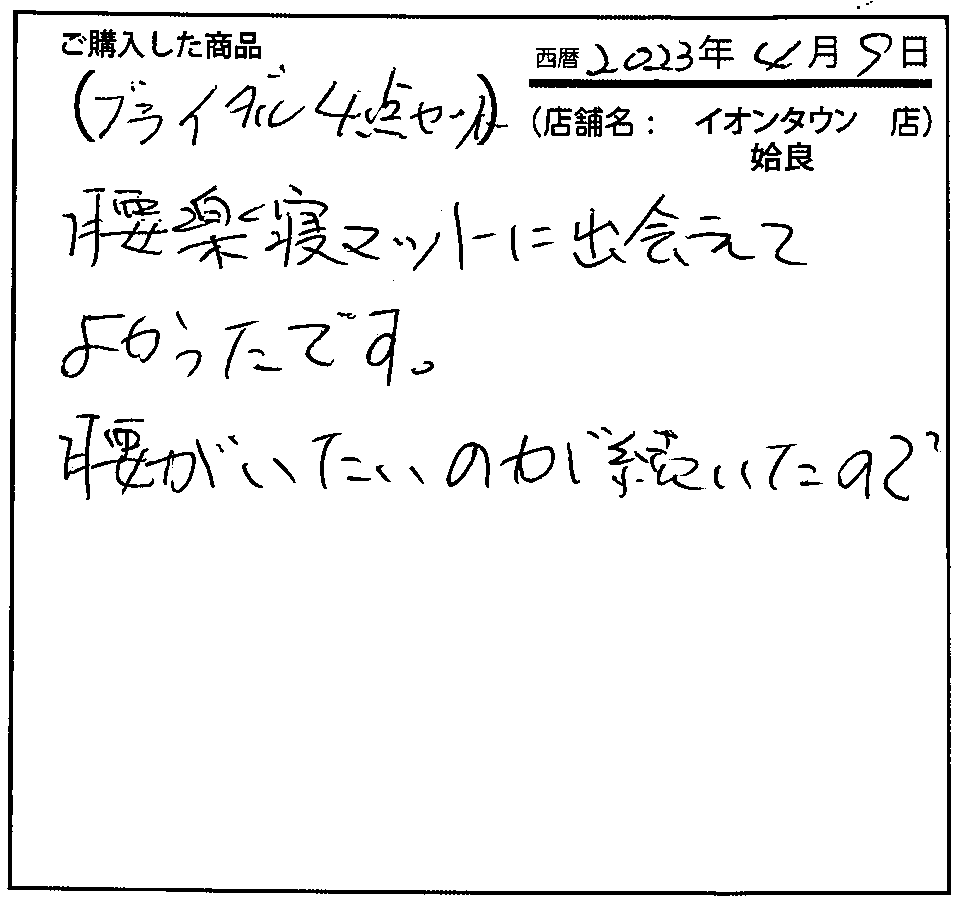 ご購入した商品
西暦 2023年 4月 9日
(ブライダル4点セット)
(店舗名： イオンタウン 店)
姶良
腰楽寝マットに出会えて
よかったです。
腰がいたいのが続いたので